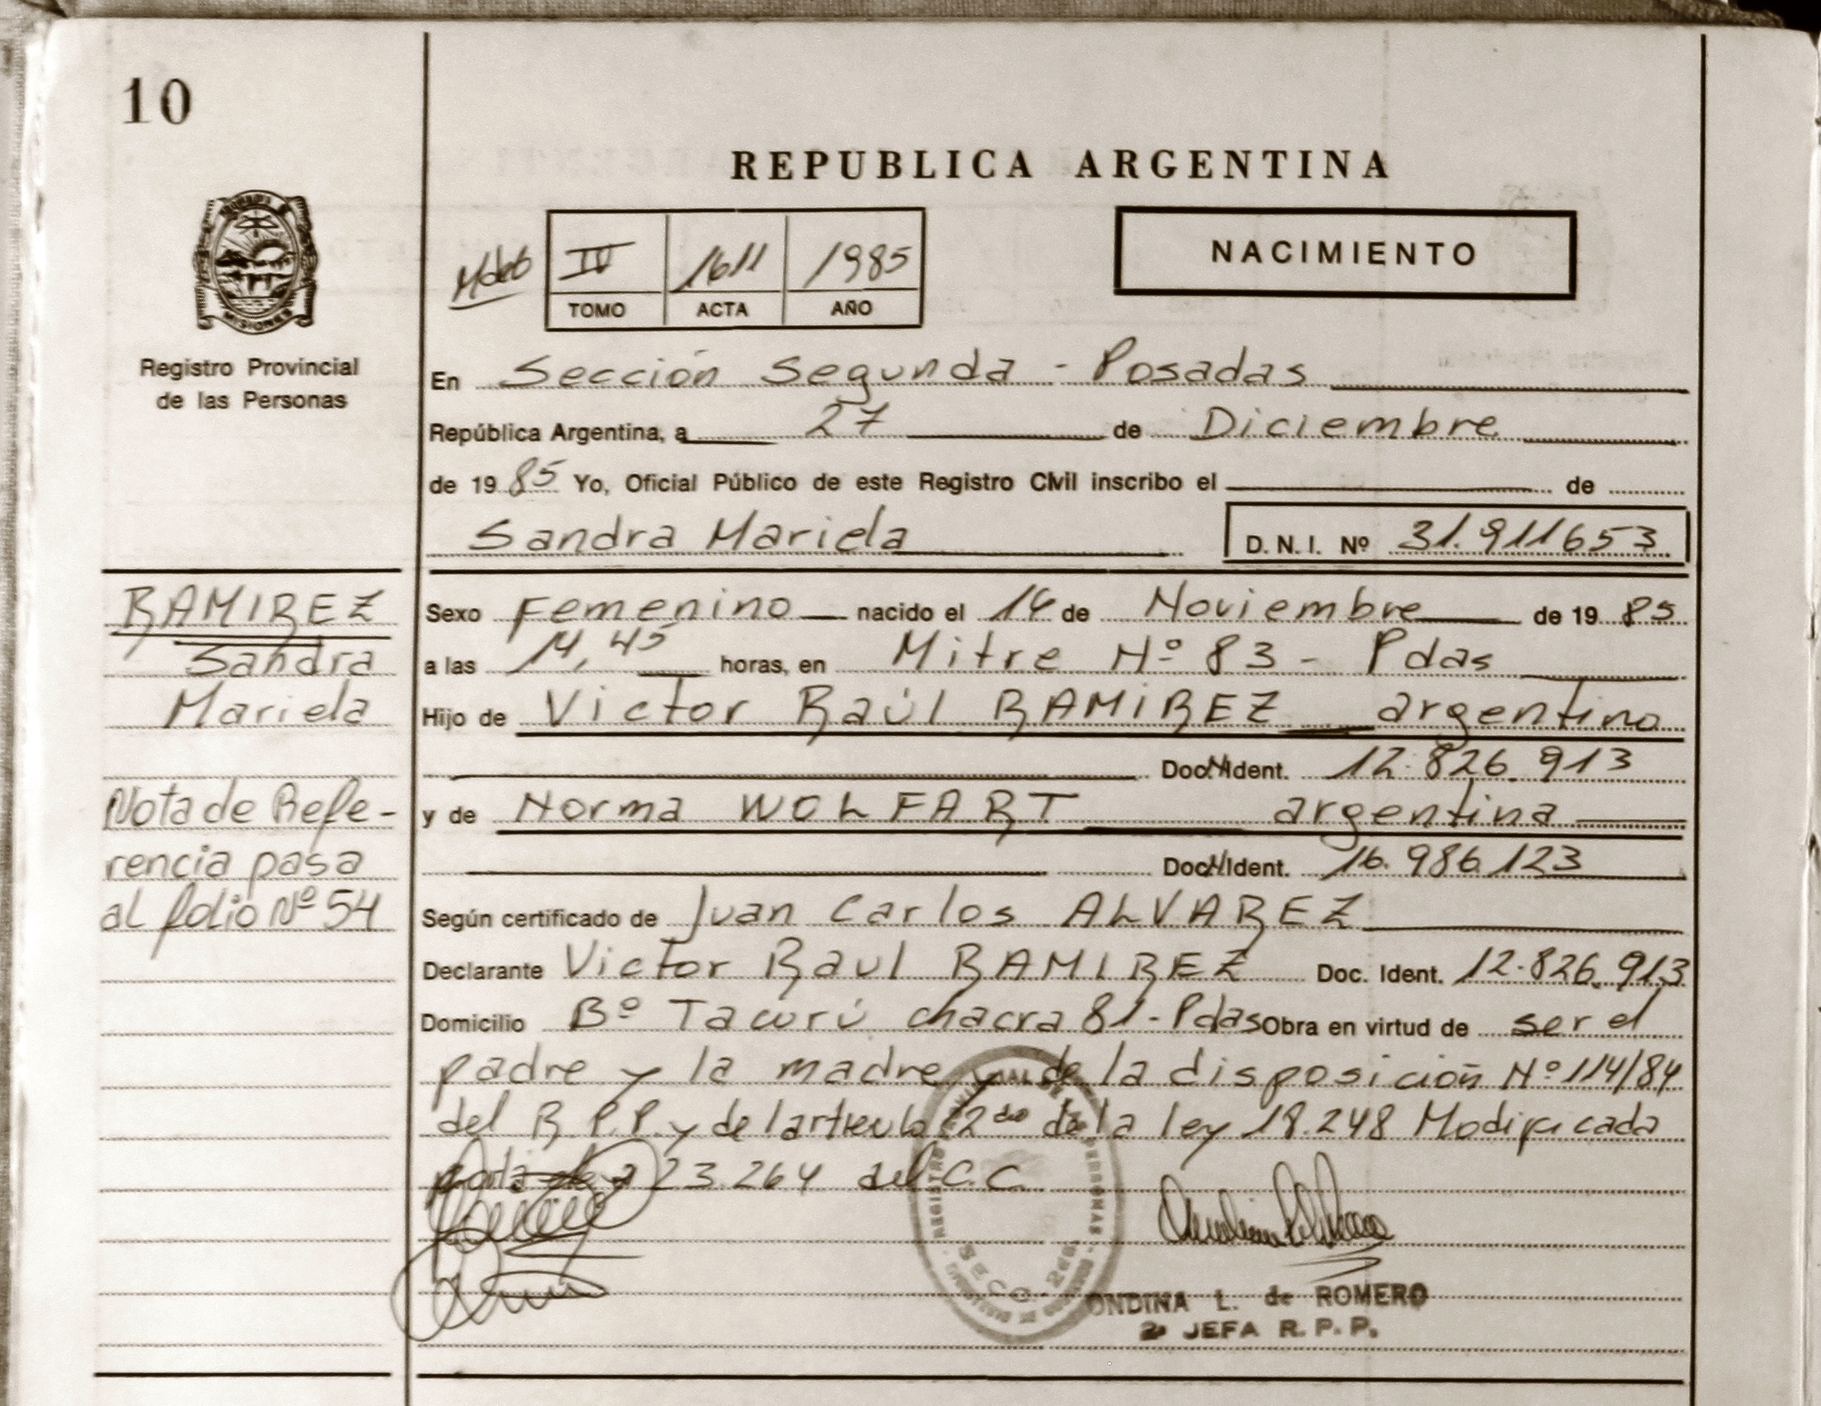 10
REPUBLICA ARGENTINA
NACIMIENTO
IV 1611 1985
TOMO ACTA AÑO
MISIONES
Registro Provincial
de las Personas
En Sección Segunda - Posadas
República Argentina, a 27 de Diciembre
de 19 85 Yo, Oficial Público de este Registro Civil inscribo el de
Sandra Mariela D. N. I. Nº 31.911653
RAMIREZ
Sandra
Mariela
Nota de Refe-
rencia pasa
al folio Nº 54
Sexo Femenino nacido el 14 de Noviembre de 19 85
a las 14,45 horas, en Mitre Nº 83 - Pdas
Hijo de Victor Raúl RAMIREZ argentino
Doc. Ident. 12.826.913
y de Norma WOLFART argentina
Doc. Ident. 16.986.123
Según certificado de Juan Carlos ALVAREZ
Declarante Victor Raul RAMIREZ Doc. Ident. 12.826.913
Domicilio Bº Tacurú chacra 81 - Pdas Obra en virtud de ser el
padre y la madre y de la disposición Nº 114/84
del R.P.P. y de l articulo 2do de la ley 18.248 Modificada
23.264 del C.C.
ONDINA L. de ROMERO
JEFA R. P. P.